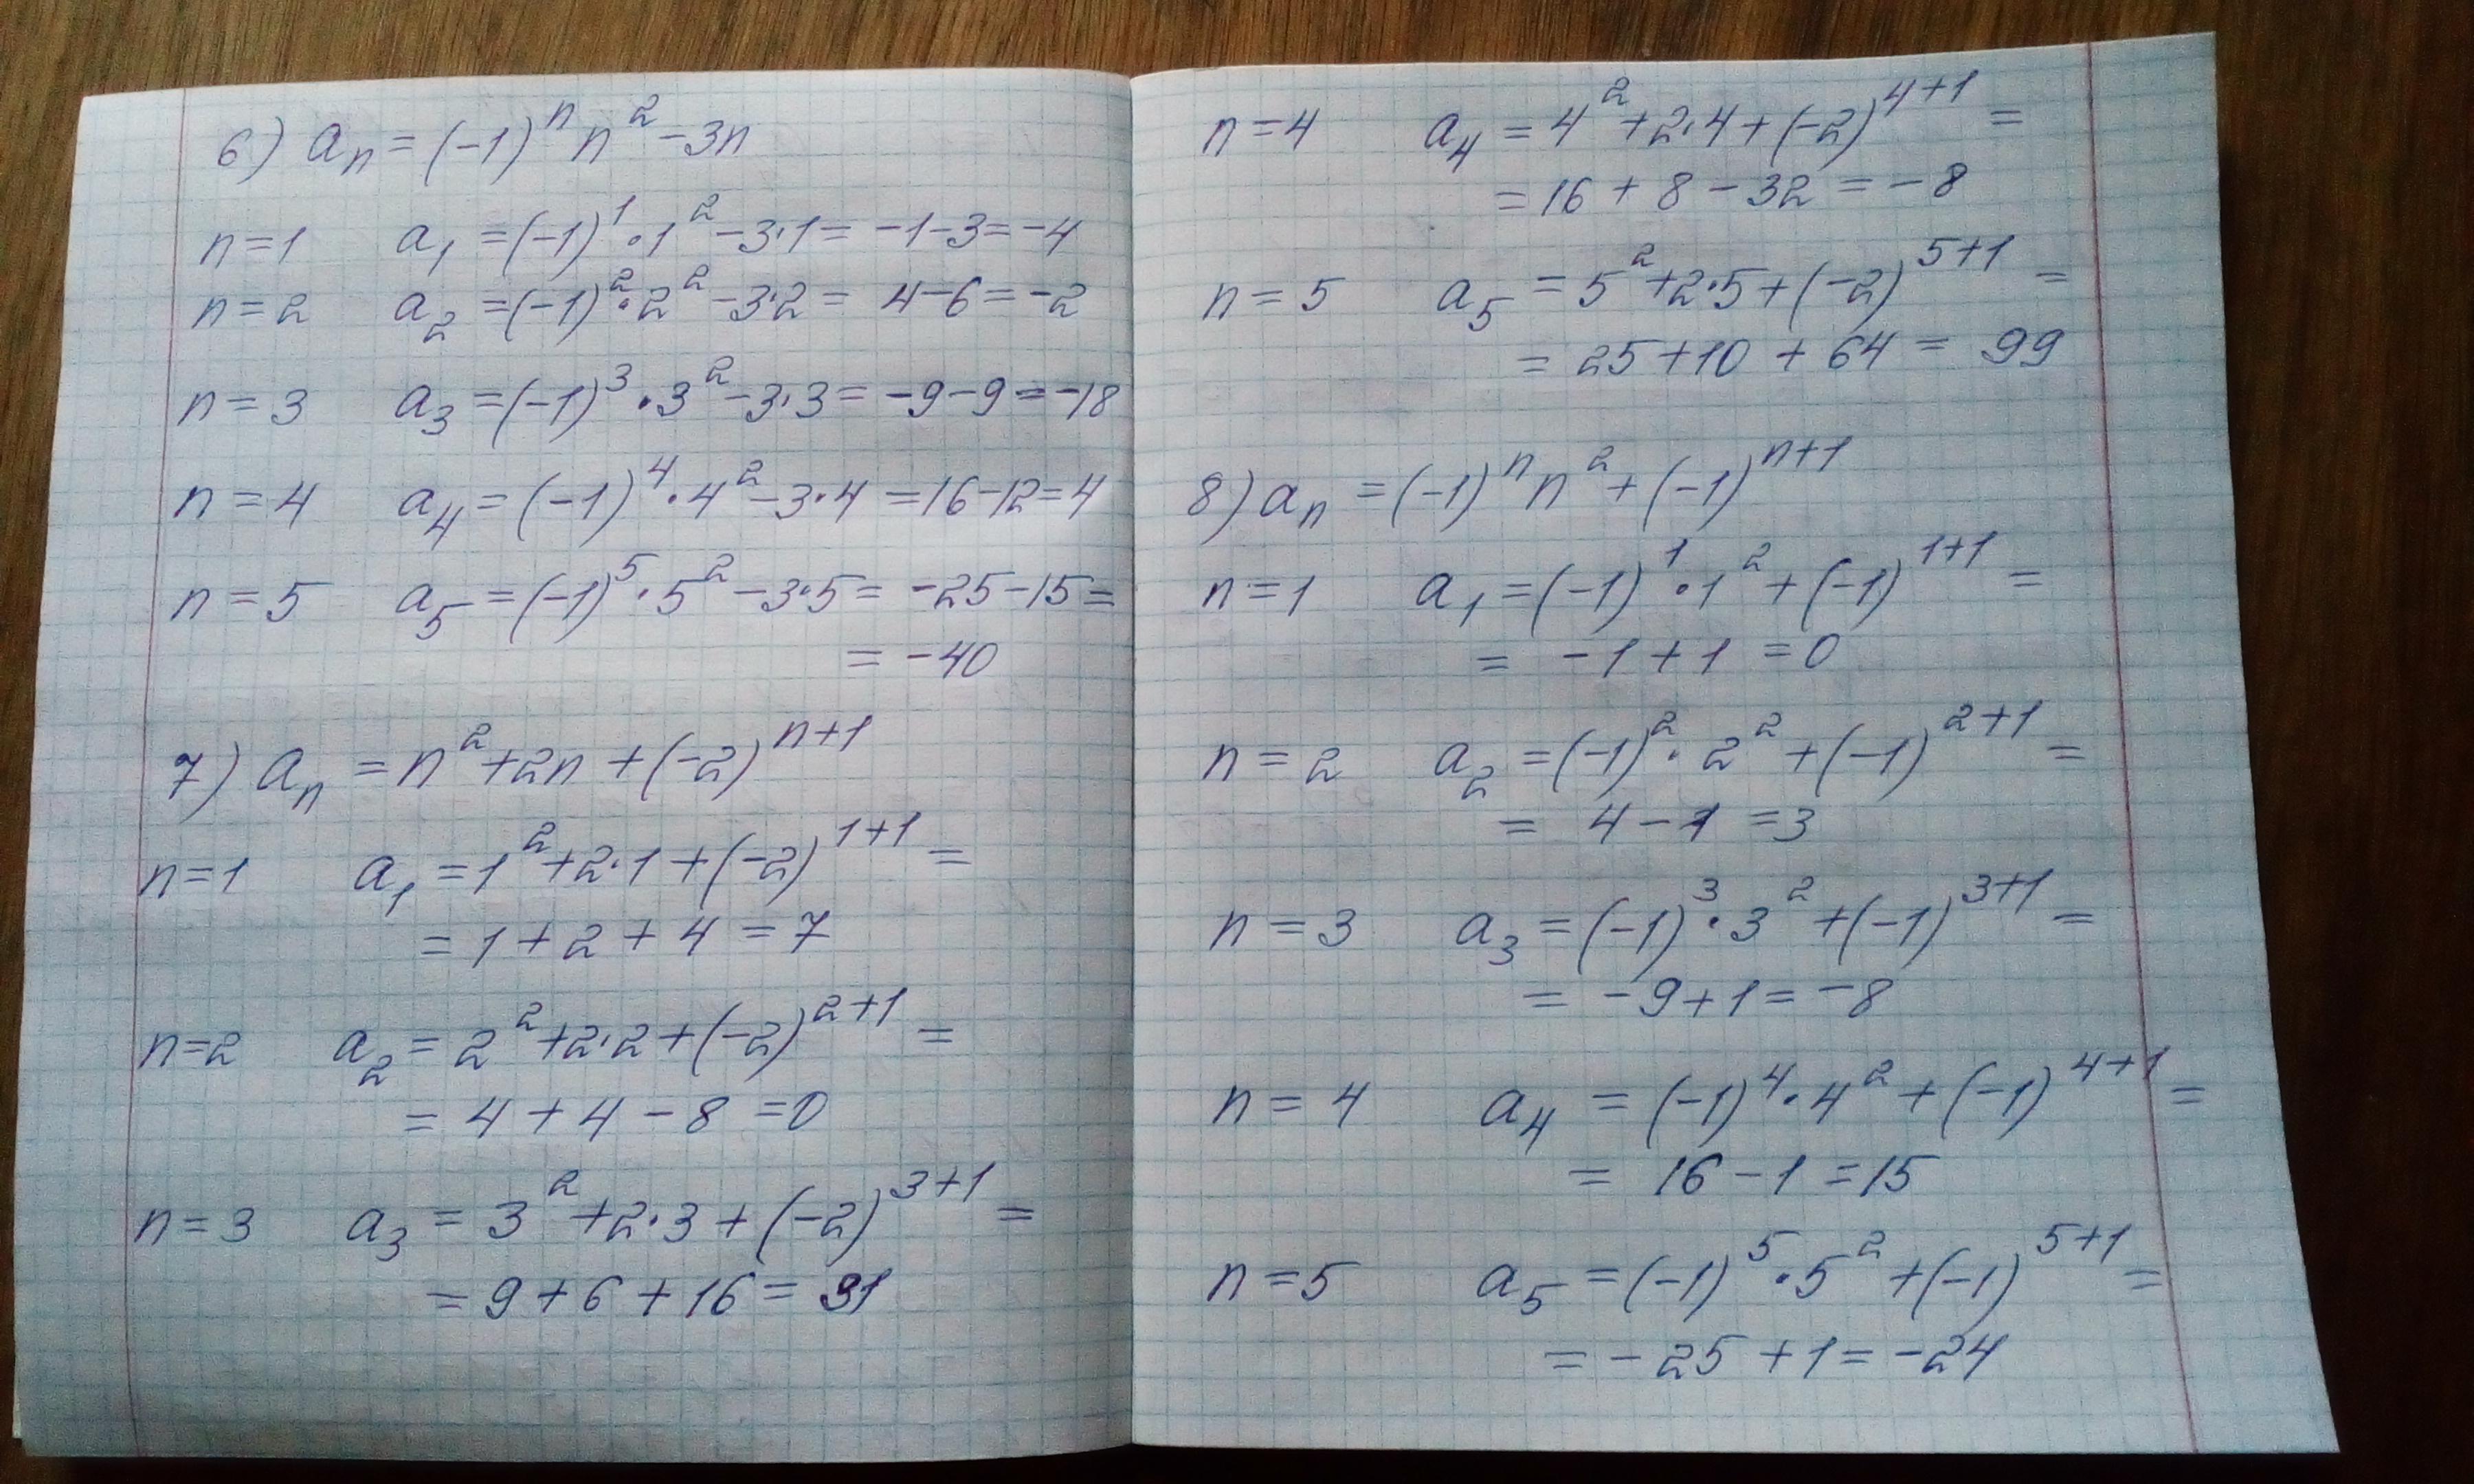 6) aₙ = (-1)ⁿ n² - 3n
n=1 a₁ = (-1)¹ · 1² - 3·1 = -1-3 = -4
n=2 a₂ = (-1)² · 2² - 3·2 = 4-6 = -2
n=3 a₃ = (-1)³ · 3² - 3·3 = -9-9 = -18
n=4 a₄ = (-1)⁴ · 4² - 3·4 = 16-12 = 4
n=5 a₅ = (-1)⁵ · 5² - 3·5 = -25-15 =
= -40
7) aₙ = n² + 2n + (-2)ⁿ⁺¹
n=1 a₁ = 1² + 2·1 + (-2)¹⁺¹ =
= 1 + 2 + 4 = 7
n=2 a₂ = 2² + 2·2 + (-2)²⁺¹ =
= 4 + 4 - 8 = 0
n=3 a₃ = 3² + 2·3 + (-2)³⁺¹ =
= 9 + 6 + 16 = 31
n=4 a₄ = 4² + 2·4 + (-2)⁴⁺¹ =
= 16 + 8 - 32 = -8
n=5 a₅ = 5² + 2·5 + (-2)⁵⁺¹ =
= 25 + 10 + 64 = 99
8) aₙ = (-1)ⁿ n² + (-1)ⁿ⁺¹
n=1 a₁ = (-1)¹ · 1² + (-1)¹⁺¹ =
= -1 + 1 = 0
n=2 a₂ = (-1)² · 2² + (-1)²⁺¹ =
= 4 - 1 = 3
n=3 a₃ = (-1)³ · 3² + (-1)³⁺¹ =
= -9 + 1 = -8
n=4 a₄ = (-1)⁴ · 4² + (-1)⁴⁺¹ =
= 16 - 1 = 15
n=5 a₅ = (-1)⁵ · 5² + (-1)⁵⁺¹ =
= -25 + 1 = -24